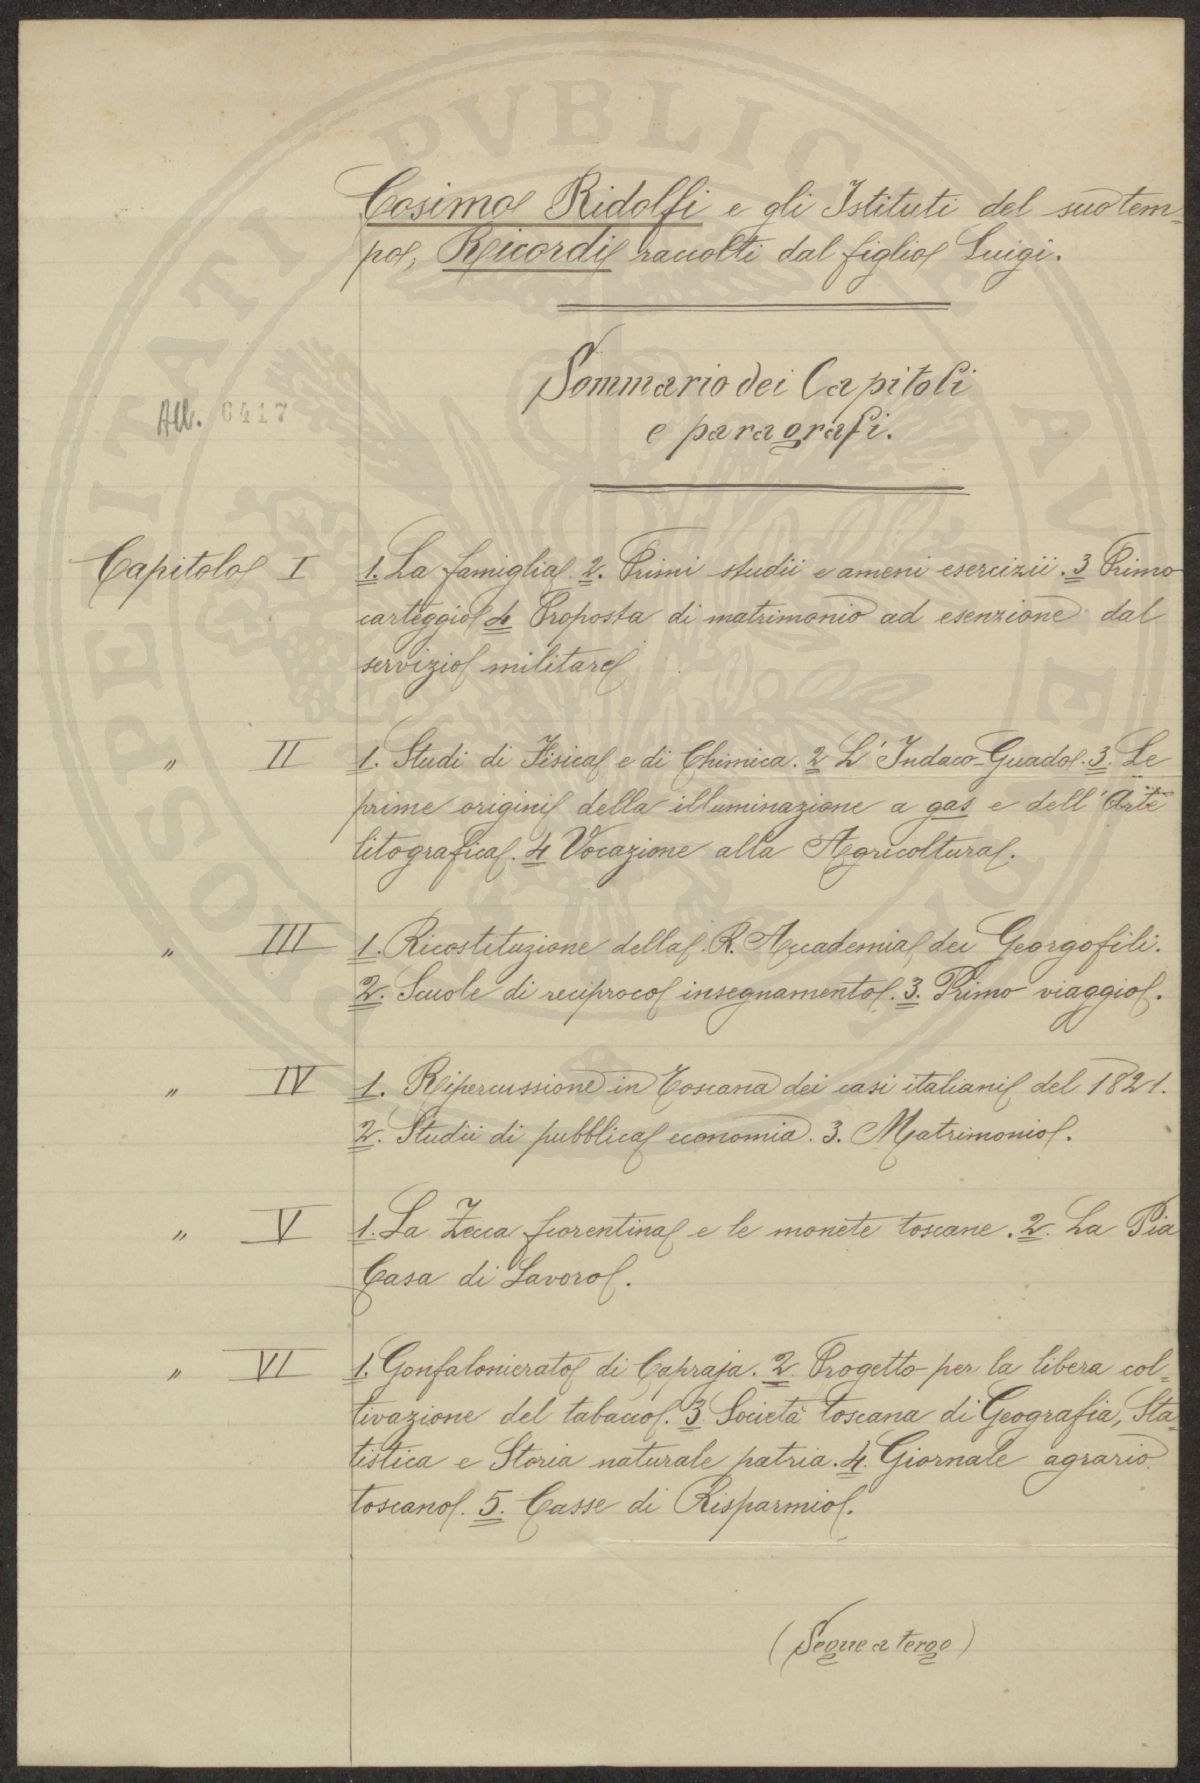 PROSPERITATI PVBLICAE AVGENDAE
Cosimo Ridolfi e gli Istituti del suo tem-
po, Ricordi raccolti dal figlio Luigi.
Sommario dei Capitoli
e paragrafi.
All. 6417
Capitolo I 1. La famiglia. 2. Primi studii e ameni esercizii. 3 Primo
carteggio 4 Proposta di matrimonio ad esenzione dal
servizio militare
" II 1. Studi di Fisica e di Chimica. 2 L'Indaco-Guado. 3. Le
prime origini della illuminazione a gas e dell'Arte
litografica. 4 Vocazione alla Agricoltura.
" III 1. Ricostituzione della R. Accademia dei Georgofili.
2. Scuole di reciproco insegnamento. 3. Primo viaggio.
" IV 1. Ripercussione in Toscana dei casi italiani del 1821.
2. Studii di pubblica economia. 3. Matrimonio.
" V 1. La Zecca fiorentina e le monete toscane. 2. La Pia
Casa di Lavoro.
" VI 1. Gonfalonierato di Capraja. 2. Progetto per la libera col-
tivazione del tabacco. 3 Società toscana di Geografia, Sta-
tistica e Storia naturale patria. 4. Giornale agrario
toscano. 5. Casse di Risparmio.
(Segue a tergo)